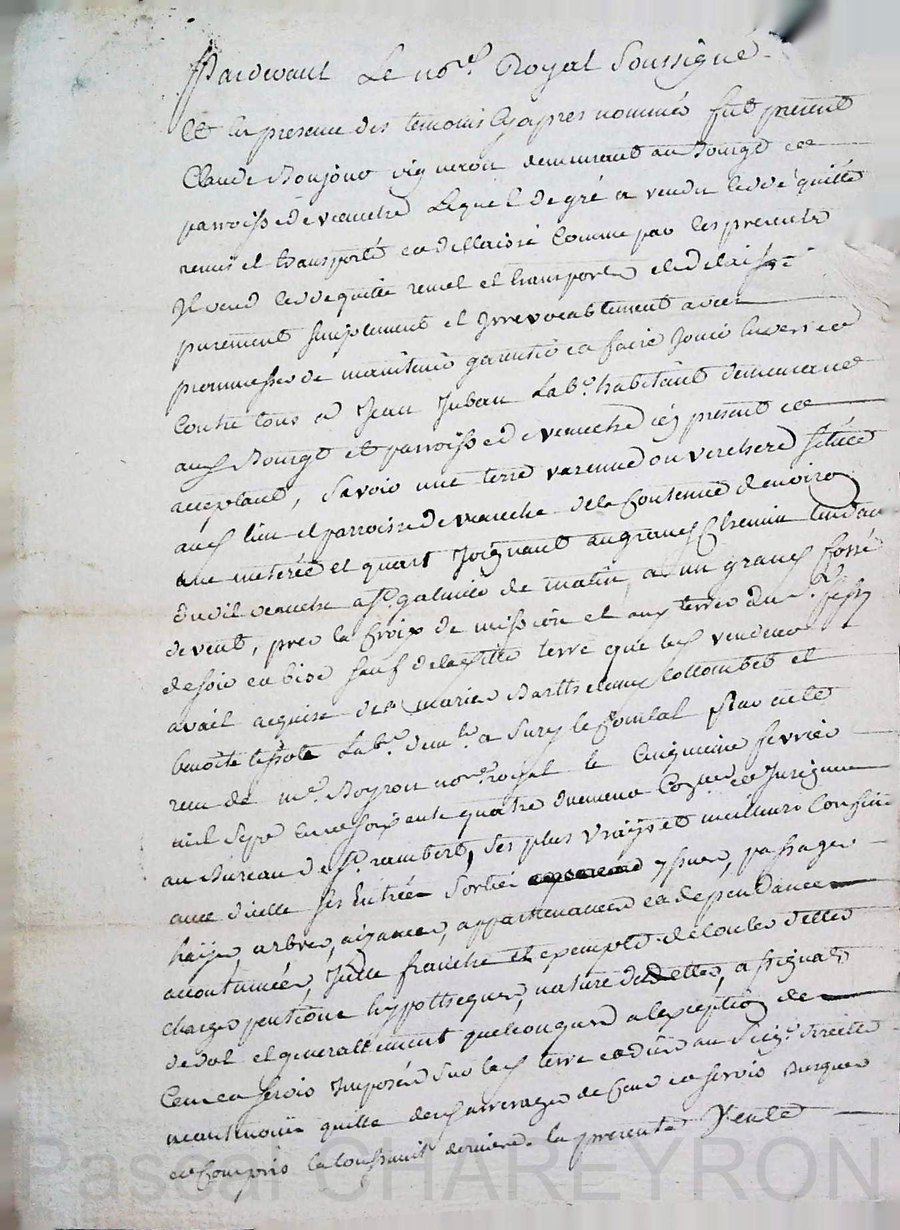 Pardevant Le no.re Royal Soussigné
Et En presence des temoins Cy apres nommés fut present
Claude Bonjour vigneron demeurant au Bourgt et
parroisse de veauche Lequel de gré a vendu ceddé quitté
remis et transporté et dellaissé Comme par les presentes
Il vend cedde quitte remet et transporte et delaisse
purement simplement et Irrevocablement avec
prommesse de maintenir garentir et faire Jouir Envers et
Contre tous a Jean Juban Lab.r habitant demeurant
aud Bourgt et parroisse de veauche icy present et
acceptant, Savoir une terre varenne ou verchere située
aud lieu et parroisse de veauche de la Contenue d'environ
une meterée et quart Joignant au grand Chemin tendant
dudit veauche a s.t galmier de matin, a un grand fossé
de vent, pres la Croix de mission et aux terres du s.r
de soir et bise sauf de laditte terre que led vendeur
avait acquise de Marie Barthelemy Collombet et
benoite tissote Lab.r dem.t a Sury le Comtal Par acte
reçu de m.e Boyron no.re royal le Cinquieme fevrier
mil Sept Cent soixante quatre duement Controllé et Insignuée
au Bureau de s.t rambert, Ses plus vrays et meilleurs Confins
avec d'icelle ses Entrées Sorties yssues, passages
hayes, arbres, aizances, appartenances et dependances
accoutumées, Jcelle franche et exempte de toutes dettes
charges pensions hypotheques, nature de dettes, assignats
de dot et generallement quelconques a l'exception de
Cens et servis Imposés Sur lad terre et dus au Seig.r direct
neantmoins quitte des arrerages de Cens et servis Jusques
et Compris la toussaint derniere. la presente Vente
Pascal CHAREYRON